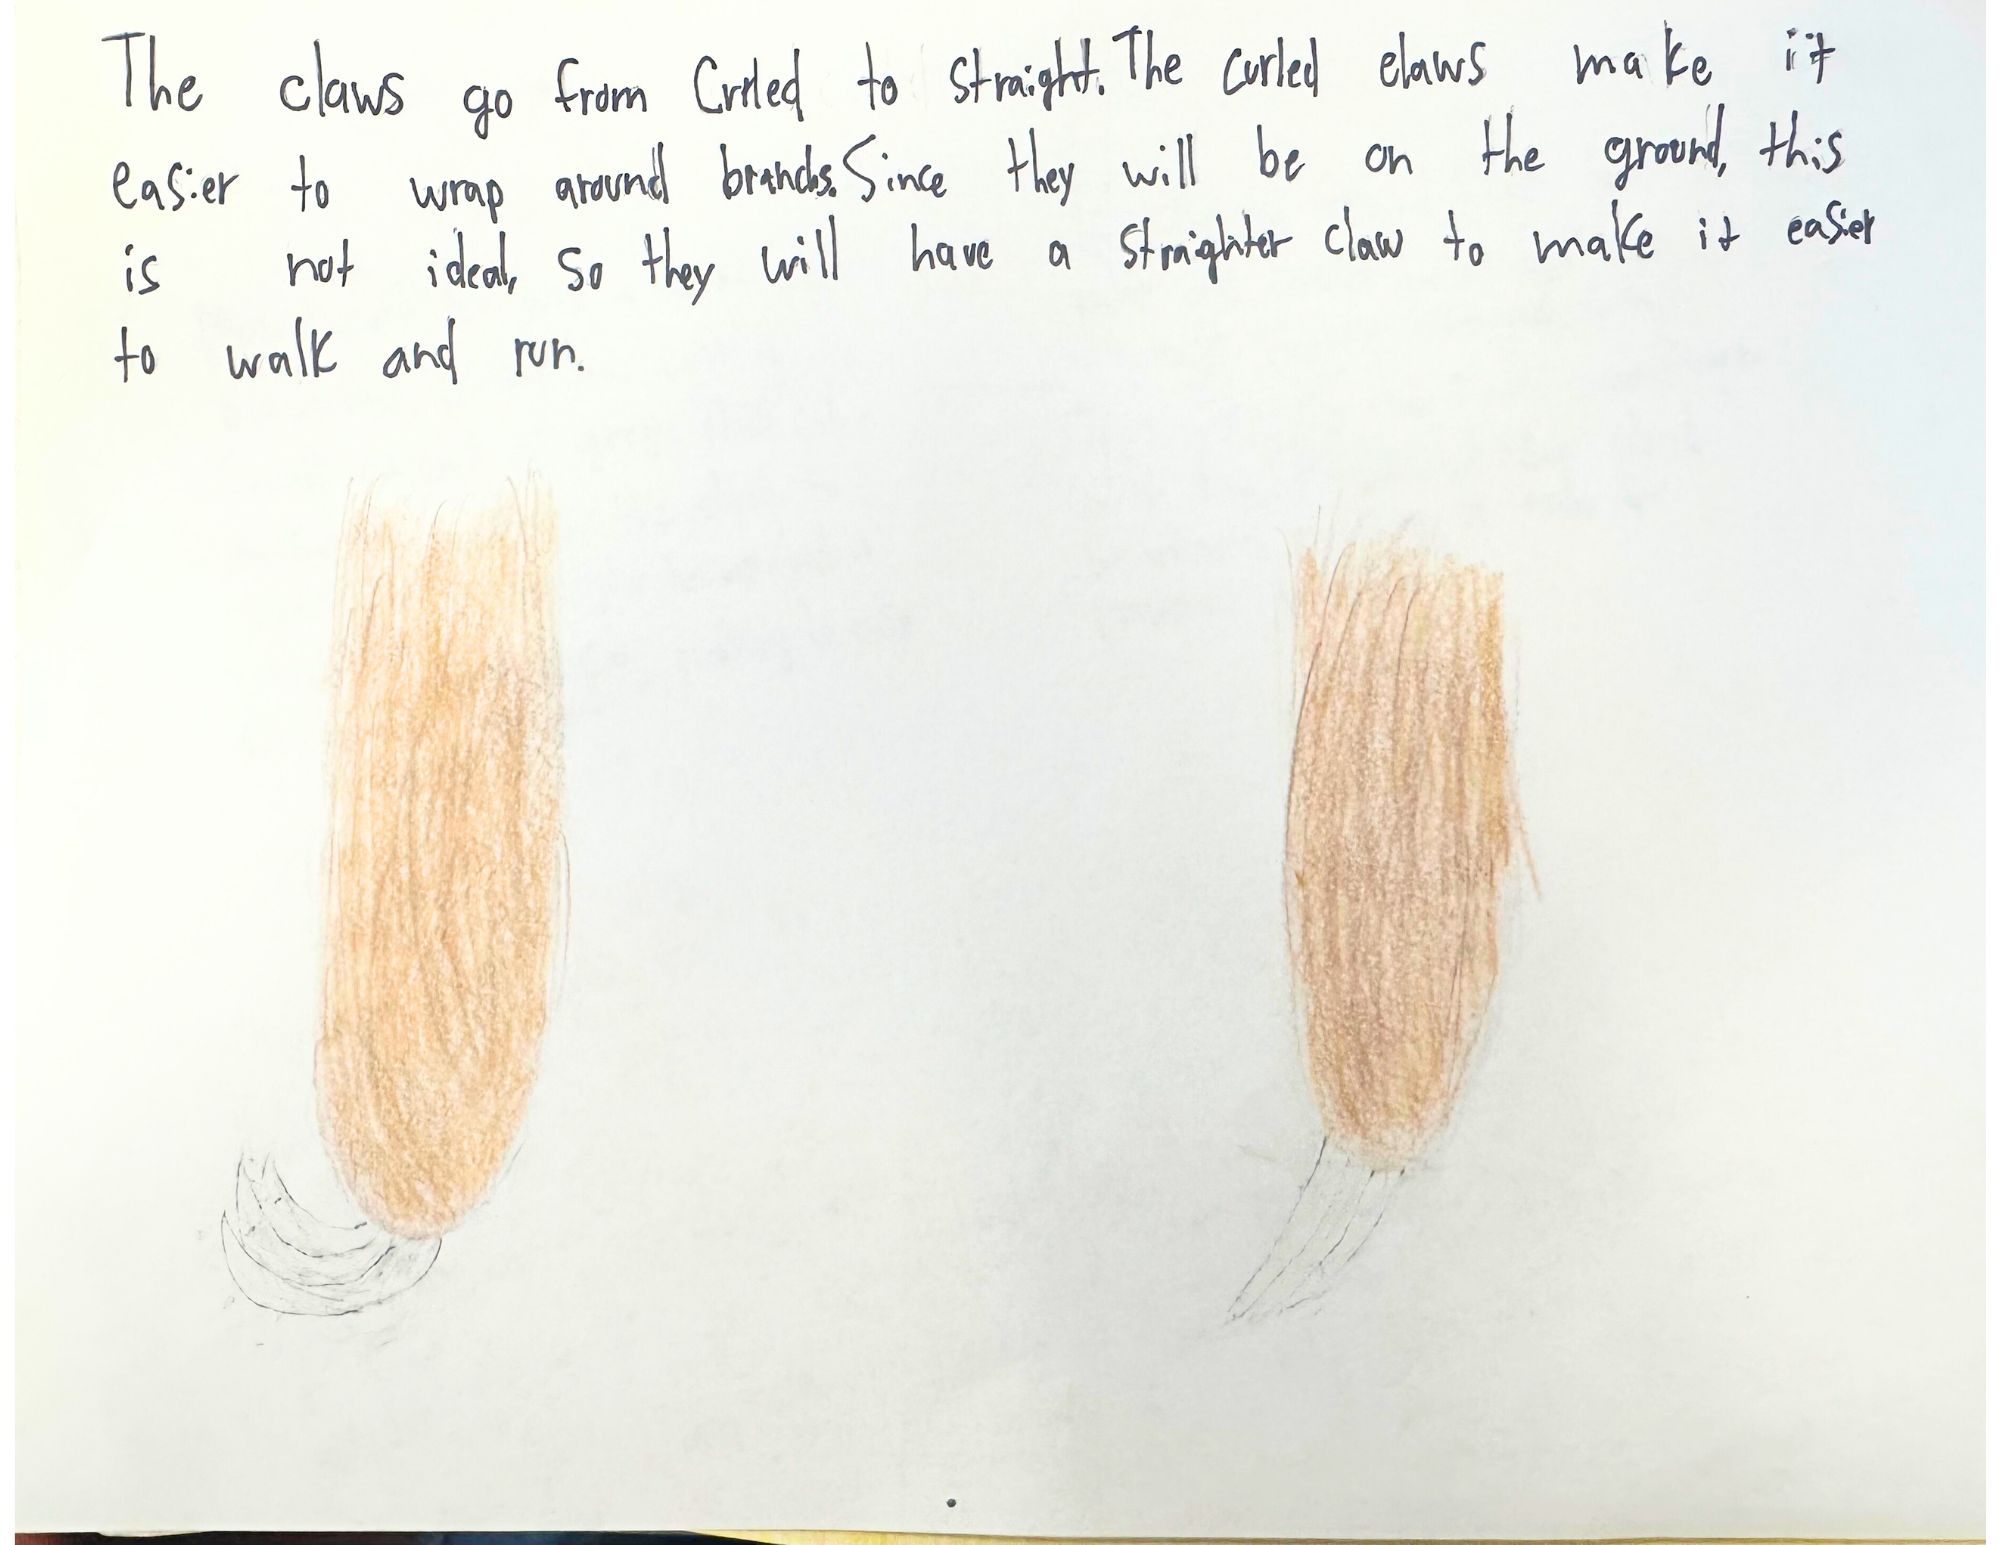 The claws go from Curled to straight. The curled claws make it
easier to wrap around branchs. Since they will be on the ground, this
is not ideal, so they will have a straighter claw to make it easier
to walk and run.